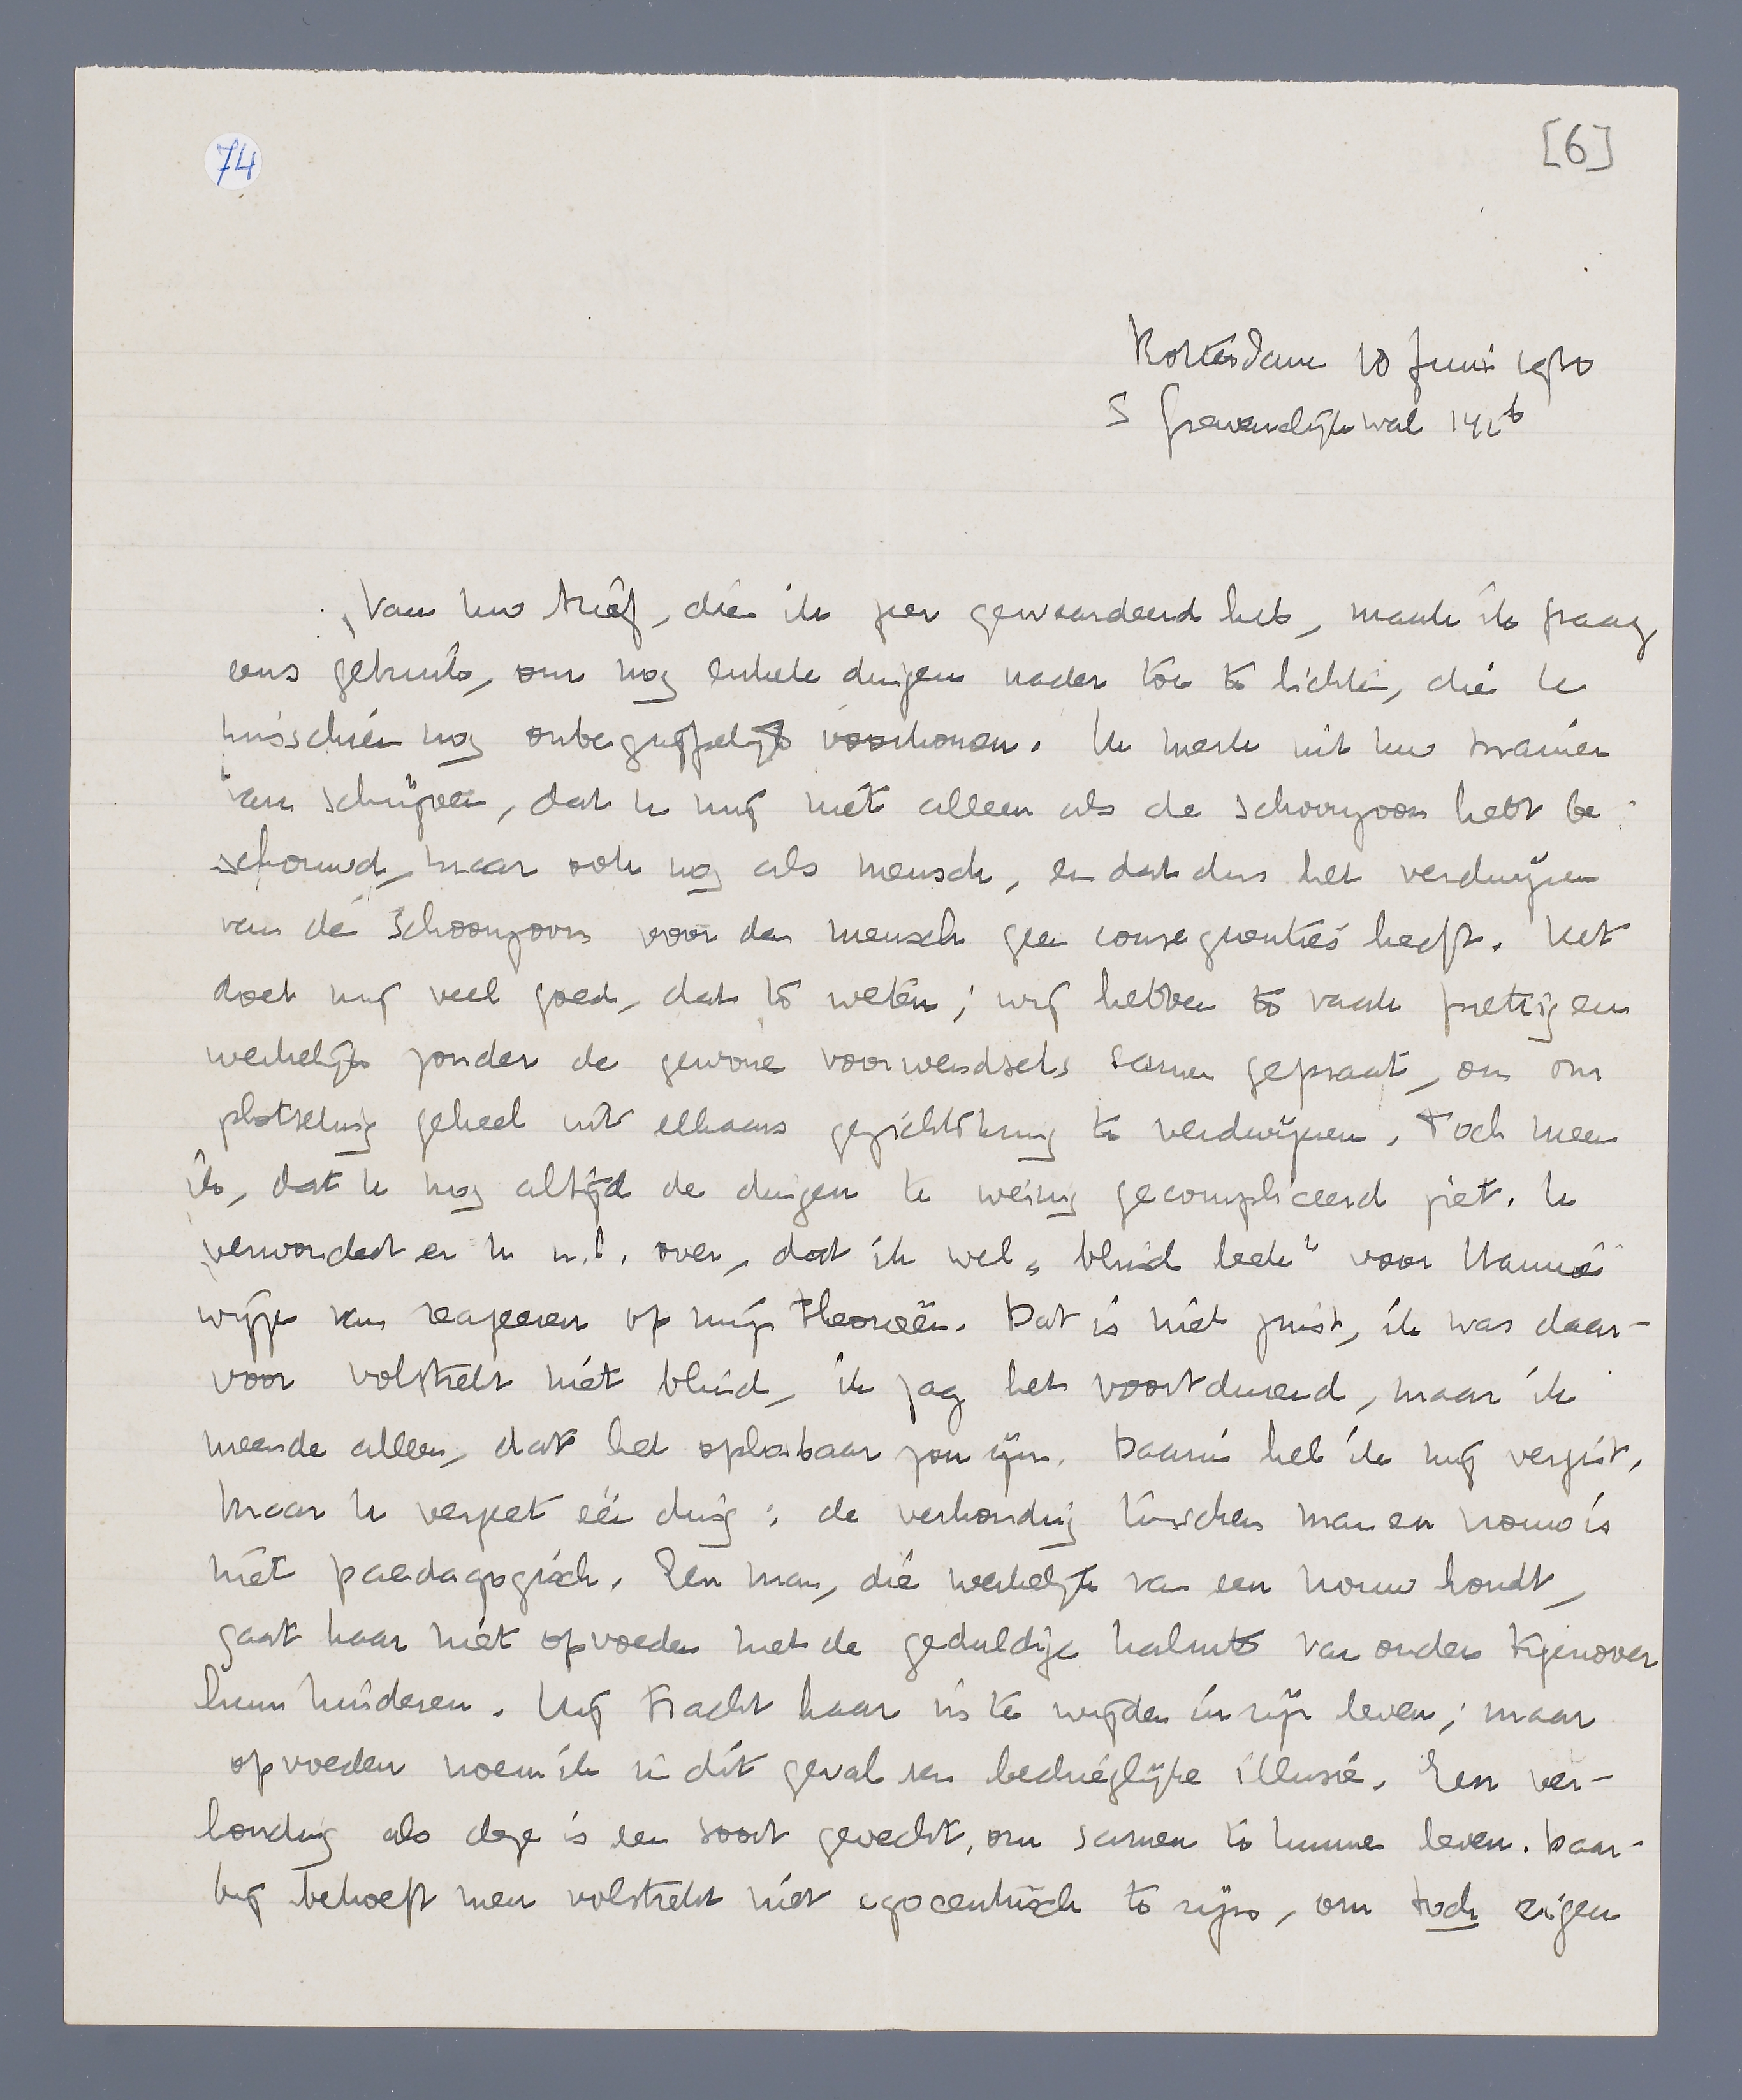 74
[6]
Rotterdam 10 Juni 1930
's Gravendijkwal 142b
Van Uw brief, dien ik zeer gewaardeerd heb, maak ik graag
eens gebruik, om nog enkele dingen nader toe te lichten, die U
misschien nog onbegrijpelijk voorkomen. Ik merk uit Uw manier
van schrijven, dat U mij niet alleen als de schoonzoon hebt be-
schouwd, maar ook nog als mensch, en dat dus het verdwijnen
van de schoonzoon voor den mensch geen consequenties heeft. Het
doet mij veel goed, dat te weten; wij hebben te vaak prettig en
werkelijk zonder de gewone voorwendsels samen gepraat, om ons
plotseling geheel uit elkaars gezichtskring te verdwijnen. Toch meen
ik, dat U nog altijd de dingen te weinig gecompliceerd ziet. U
verwondert er U n.l. over, dat ik wel „blind leek" voor Hannie's
wijze van reageeren op mijn theorieën. Dat is niet juist, ik was daar-
voor volstrekt niet blind, ik zag het voortdurend, maar ik
meende alleen, dat het oplosbaar zou zijn. Daarin heb ik mij vergist.
Maar U vergeet één ding: de verhouding tusschen man en vrouw is
niet paedagogisch. Een man, die werkelijk van een vrouw houdt,
gaat haar niet opvoeden met de geduldige kalmte van ouders tegenover
hun kinderen. Hij tracht haar in te wijden in zijn leven; maar
opvoeden noem ik in dit geval een bedriegelijke illusie. Een ver-
houding als deze is een soort gevecht, om samen te kunnen leven. Daar-
bij behoeft men volstrekt niet egocentrisch te zijn, om toch eigen